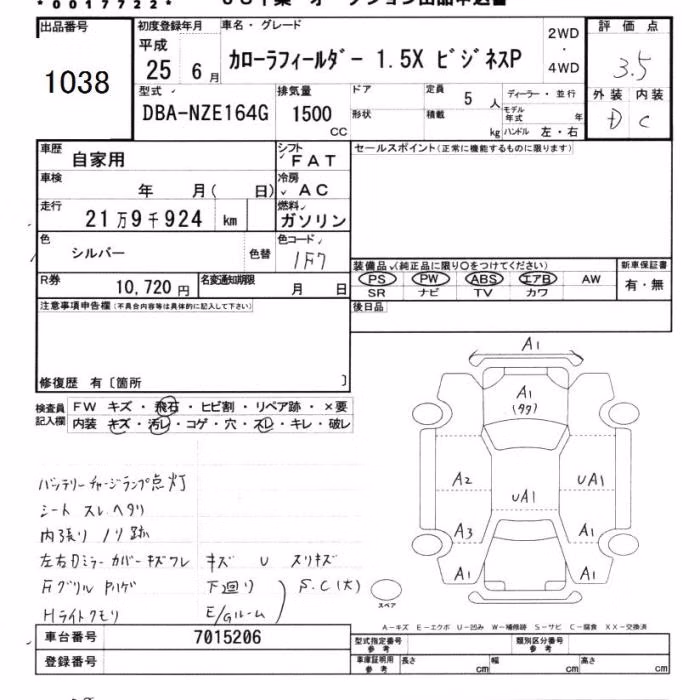 *0017722*
出品番号
1038
初度登録年月
平成
25 6月
車名・グレード
カローラフィールダー 1.5X ビジネスP
2WD
・
4WD
評価点
3.5
外装 内装
D C
型式
DBA-NZE164G
排気量
1500
CC
ドア
形状
定員
5 人
積載
kg
ディーラー・並行
モデル年式 年
ハンドル 左・右
車歴
自家用
シフト
FAT
車検
年 月( 日)
冷房
AC
走行
21万9千924 km
燃料
ガソリン
色
シルバー
色替
色コード
1F7
R券
10,720円
名変通知期限
月 日
セールスポイント(正常に機能するものに限ります)
装備品 (純正品に限り○をつけてください)
PS PW ABS エアB AW
SR ナビ TV カワ
新車保証書
有・無
注意事項申告欄(不具合内容等は具体的に記入して下さい)
後日品
修復歴 有〔箇所 〕
検査員
記入欄
FW キズ・飛石・ヒビ割・リペア跡・×要
内装 キズ・汚レ・コゲ・穴・スレ・キレ・破レ
バッテリーチャージランプ点灯
シート スレ ヘタリ
内張り ノリ跡
左右Dミラーカバーキズワレ キズ U スリキズ
Fグリル Pハゲ 下回り
S.C(大)
Hライトクモリ E/Gルーム
A1
A1
(タタ)
A2
UA1
UA1
A3
A1
A1
A1
スペア
A-キズ E-エクボ U-凹み W-補修跡 S-サビ C-腐食 XX-交換済
車台番号
7015206
登録番号
型式指定番号
参考
類別区分番号
参考
車庫証明用
参考
長さ cm
幅 cm
高さ cm